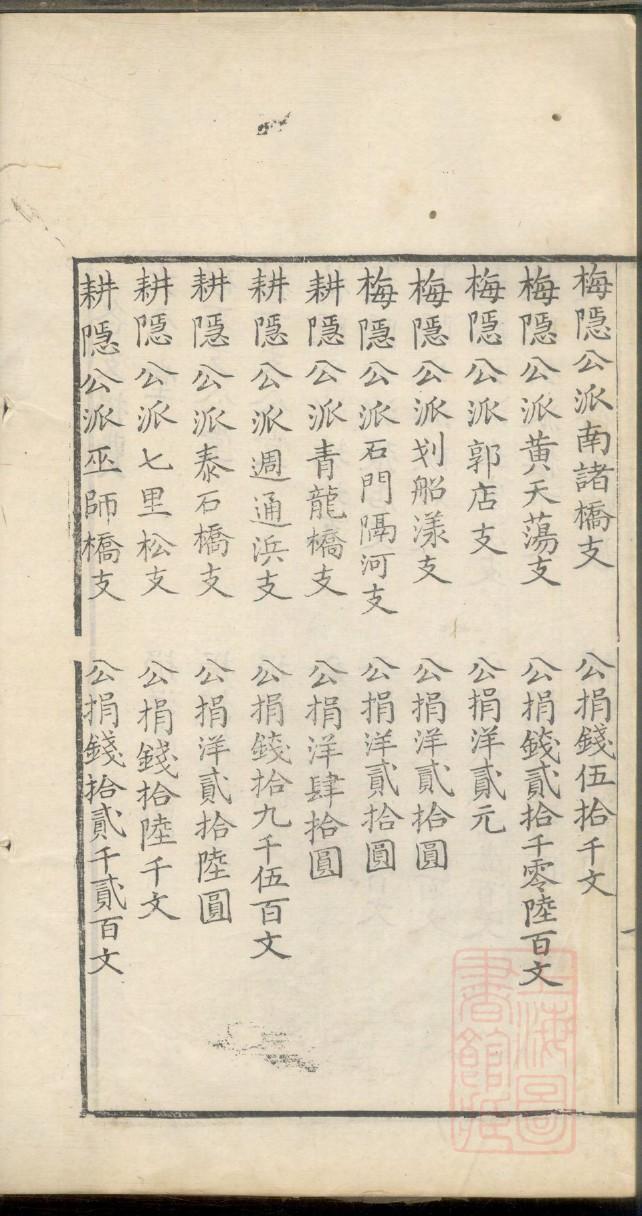 梅隱公派南諸橋支 公捐錢伍拾千文
梅隱公派黄天蕩支 公捐錢貳拾千零陸百文
梅隱公派郭店支 公捐洋貳元
梅隱公派划船漾支 公捐洋貳拾圓
梅隱公派石門隔河支 公捐洋貳拾圓
耕隱公派青龍橋支 公捐洋肆拾圓
耕隱公派週通浜支 公捐錢拾九千伍百文
耕隱公派泰石橋支 公捐洋貳拾陸圓
耕隱公派七里松支 公捐錢拾陸千文
耕隱公派巫師橋支 公捐錢拾貳千貳百文
上海圖
書館藏